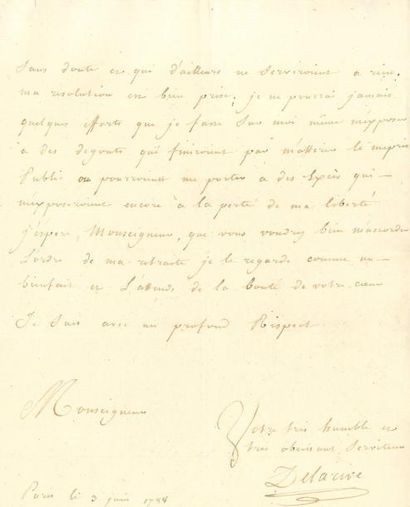 Sans doute et qui d'ailleurs ne serviroient a rien.
ma resolution est bien prise; je ne pourrai jamais
quelques efforts que je fasse sur moi même m'exposer
à des degouts qui finiroient par m'attirer le mepris
Public ou pourroient me porter a des qui
m'exposeroient encore à la perte de ma liberté
j'espere, Monseigneur, que vous voudrez bien m'accorder
L'ordre de ma retraite je le regarde comme un
bienfait et L'attends de la bonté de votre coeur
Je suis avec un profond Respect
Monseigneur
Votre très humble et
très obeissant Serviteur
Delarive
Paris le 3 juin